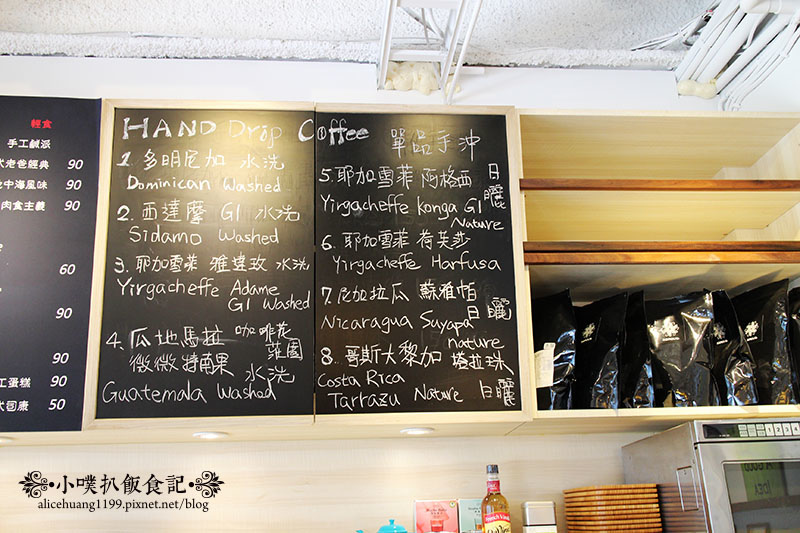 輕食
手工鹹派
老爸經典 90
中海風味 90
肉食主義 90
60
90
90
工蛋糕 90
50
HAND Drip Coffee 單品手沖
1. 多明尼加 水洗
Dominican Washed
2. 西達摩 G1 水洗
Sidamo Washed
3. 耶加雪菲 雅達玫 水洗
Yirgacheffe Adame
G1 Washed
4. 瓜地馬拉 咖啡花
薇薇特南果 莊園
水洗
Guatemala Washed
5. 耶加雪菲 阿格西 日曬
Yirgacheffe Konga G1
Nature
6. 耶加雪菲 荷芙莎
Yirgacheffe Harfusa
7. 尼加拉瓜 蘇雅帕
日曬
Nicaragua Suyapa
nature
8. 哥斯大黎加 塔拉珠
Costa Rica
Tarrazu Nature 日曬
小噗扒飯食記
alicehuang1199.pixnet.net/blog